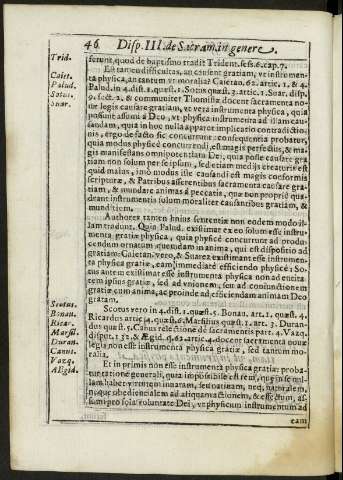 46 Disp. III. de Sacram. in genere.
Trid.
ferunt, quod de baptismo tradit Trident. sess. 6. cap. 7.
Est tamen difficultas, an causent gratiam, vt instrumen-
Caiet.
ta physica, an tantum vt moralia? Caietan. 62. artic. 1. & 4.
Palud.
Palud. in 4. dist. 1. quæst. 1. Sotus quæst. 3. artic. 1. Suar. disp.
Sotus.
9. sect. 2. & communiter Thomistæ docent sacramenta no-
Suar.
uæ legis causare gratiam, vt vera instrumenta physica, quia
possunt assumi à Deo, vt physica instrumenta ad illam cau-
sandam, quia in hoc nulla apparet implicatio contradictio-
nis, ergo de facto sic concurrunt: consequentia probatur,
quia modus physicè concurrendi, est magis perfectus, & ma-
gis manifestans omnipotentiam Dei, quia posse causare gra-
tiam non solum per se ipsum, sed etiam medijs creaturis est
quid maius, imò modus iste causandi est magis conformis
scripturæ, & Patribus asserentibus sacramenta causare gra-
tiam, & mundare animas à peccatis, quæ non propriè qua-
drant instrumentis solum moraliter causantibus gratiam, &
munditiem.
Authores tamen huius sententiæ non eodem modo il-
lam tradunt. Quia Palud. existimat ex eo solum esse instru-
menta gratiæ physica, quia physicè concurrunt ad produ-
cendum ornatum quemdam in anima, qui est dispositio ad
gratiam: Caietan. vero, & Suarez existimant esse instrumen-
ta physica gratiæ, eam immediatè efficiendo physicè: So-
tus autem existimat esse instrumenta physica non ad entita-
tem ipsius gratiæ, sed ad vnionem, seu ad coniunctionem
gratiæ cum anima, ac proinde ad efficiendam animam Deo
gratam.
Scotus.
Scotus vero in 4. dist. 1. quæst. 5. Bonau. art. 1. quæst. 4.
Bonau.
Ricardus artic. 4. quæst. 6. Marsilius quæst. 1. art. 3. Duran-
Ricar.
dus quæst. 5. Canus relectione de sacramentis part. 4. Vazq.
Marsil.
disput. 132. & Ægid. q. 62. artic. 4. docent, sacramenta nouæ
Duran.
legis non esse instrumenta physica gratiæ, sed tantum mo-
Canus.
ralia.
Vazq.
Et in primis non esse instrumenta physica gratiæ: proba-
Aegid.
tur ratione generali, quia impossibile est rem, quæ in se nul-
lam habet virtutem innatam, seu natiuam, neq; naturalem,
neque obedientialem ad aliquam actionem, & effectum, as-
sumi pro sola voluntate Dei, vt physicum instrumentum ad
eam